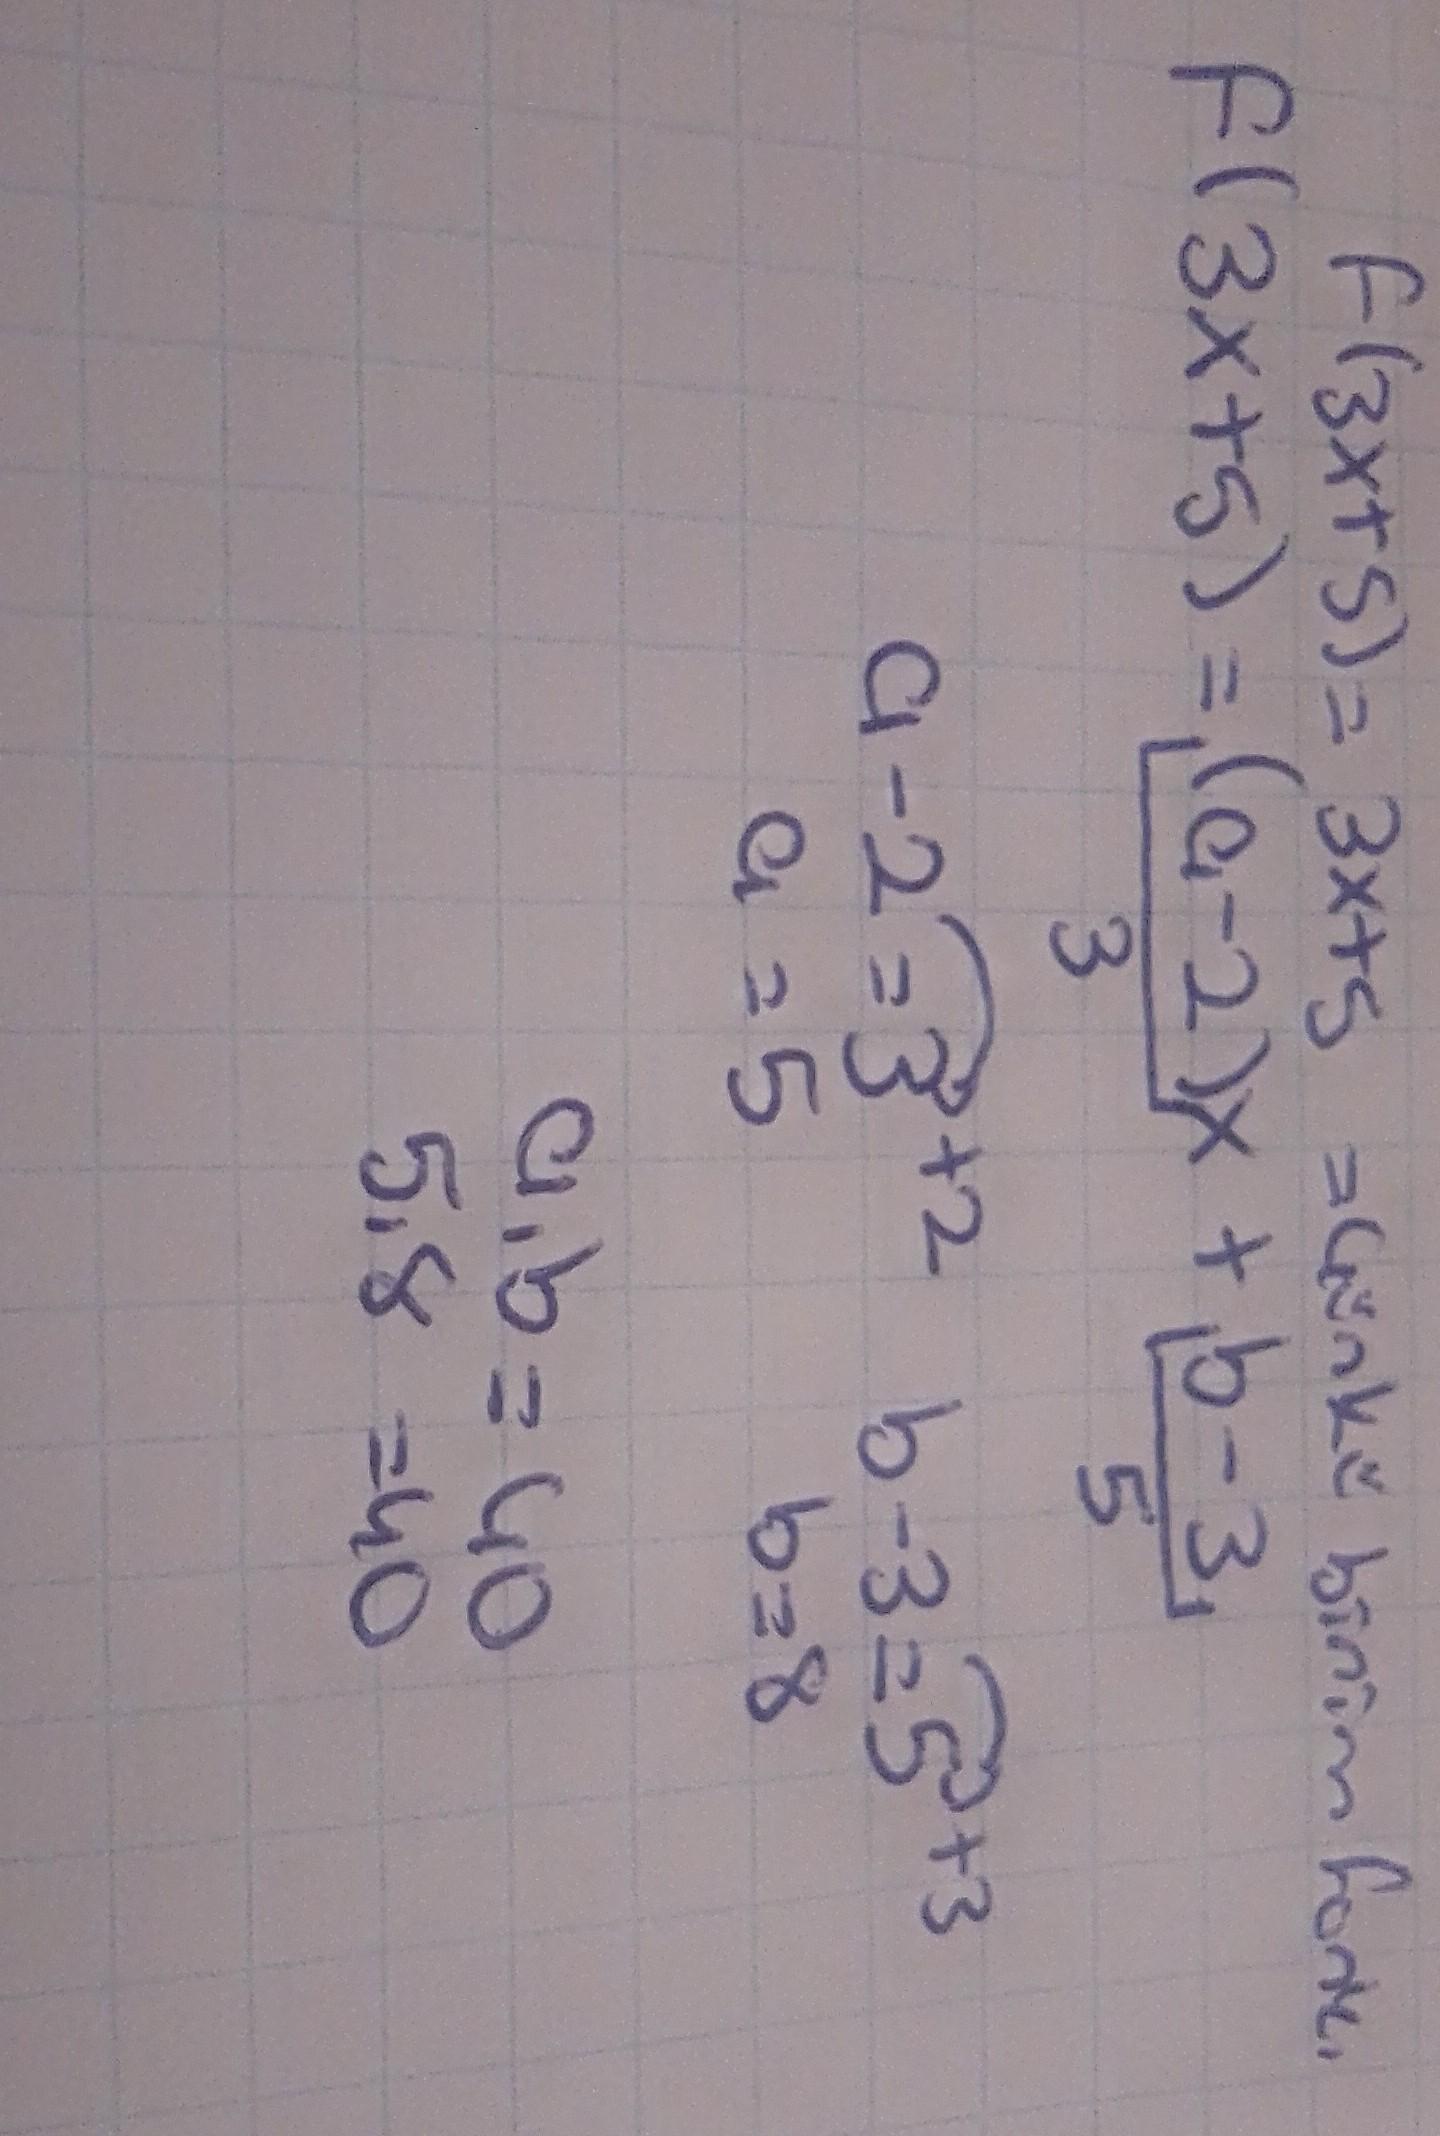 F(3x+5) = 3x+5 = Çünkü birim fonk.
F(3x+5) = (a-2)x + b-3
3 5
a-2=3+2 b-3=5+3
a=5 b=8
a.b=40
5.8=40